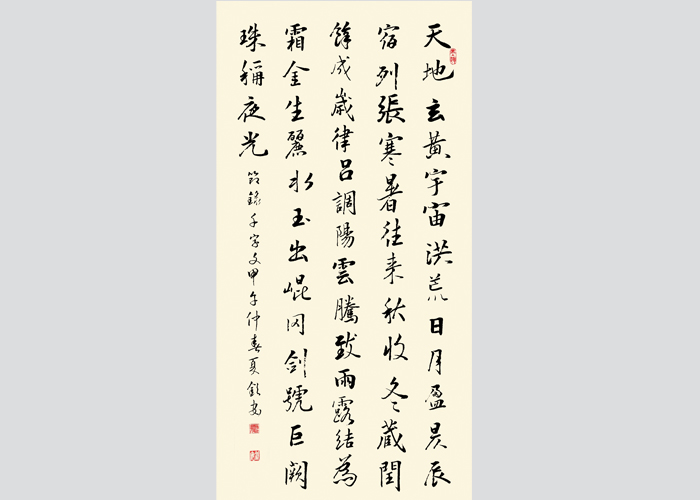 天地玄黃宇宙洪荒日月盈昃辰
宿列張寒暑往来秋收冬藏閏
餘成歲律呂調陽雲騰致雨露結為
霜金生麗水玉出崐岡劍號巨闕
珠稱夜光
節錄千字文甲午仲春夏